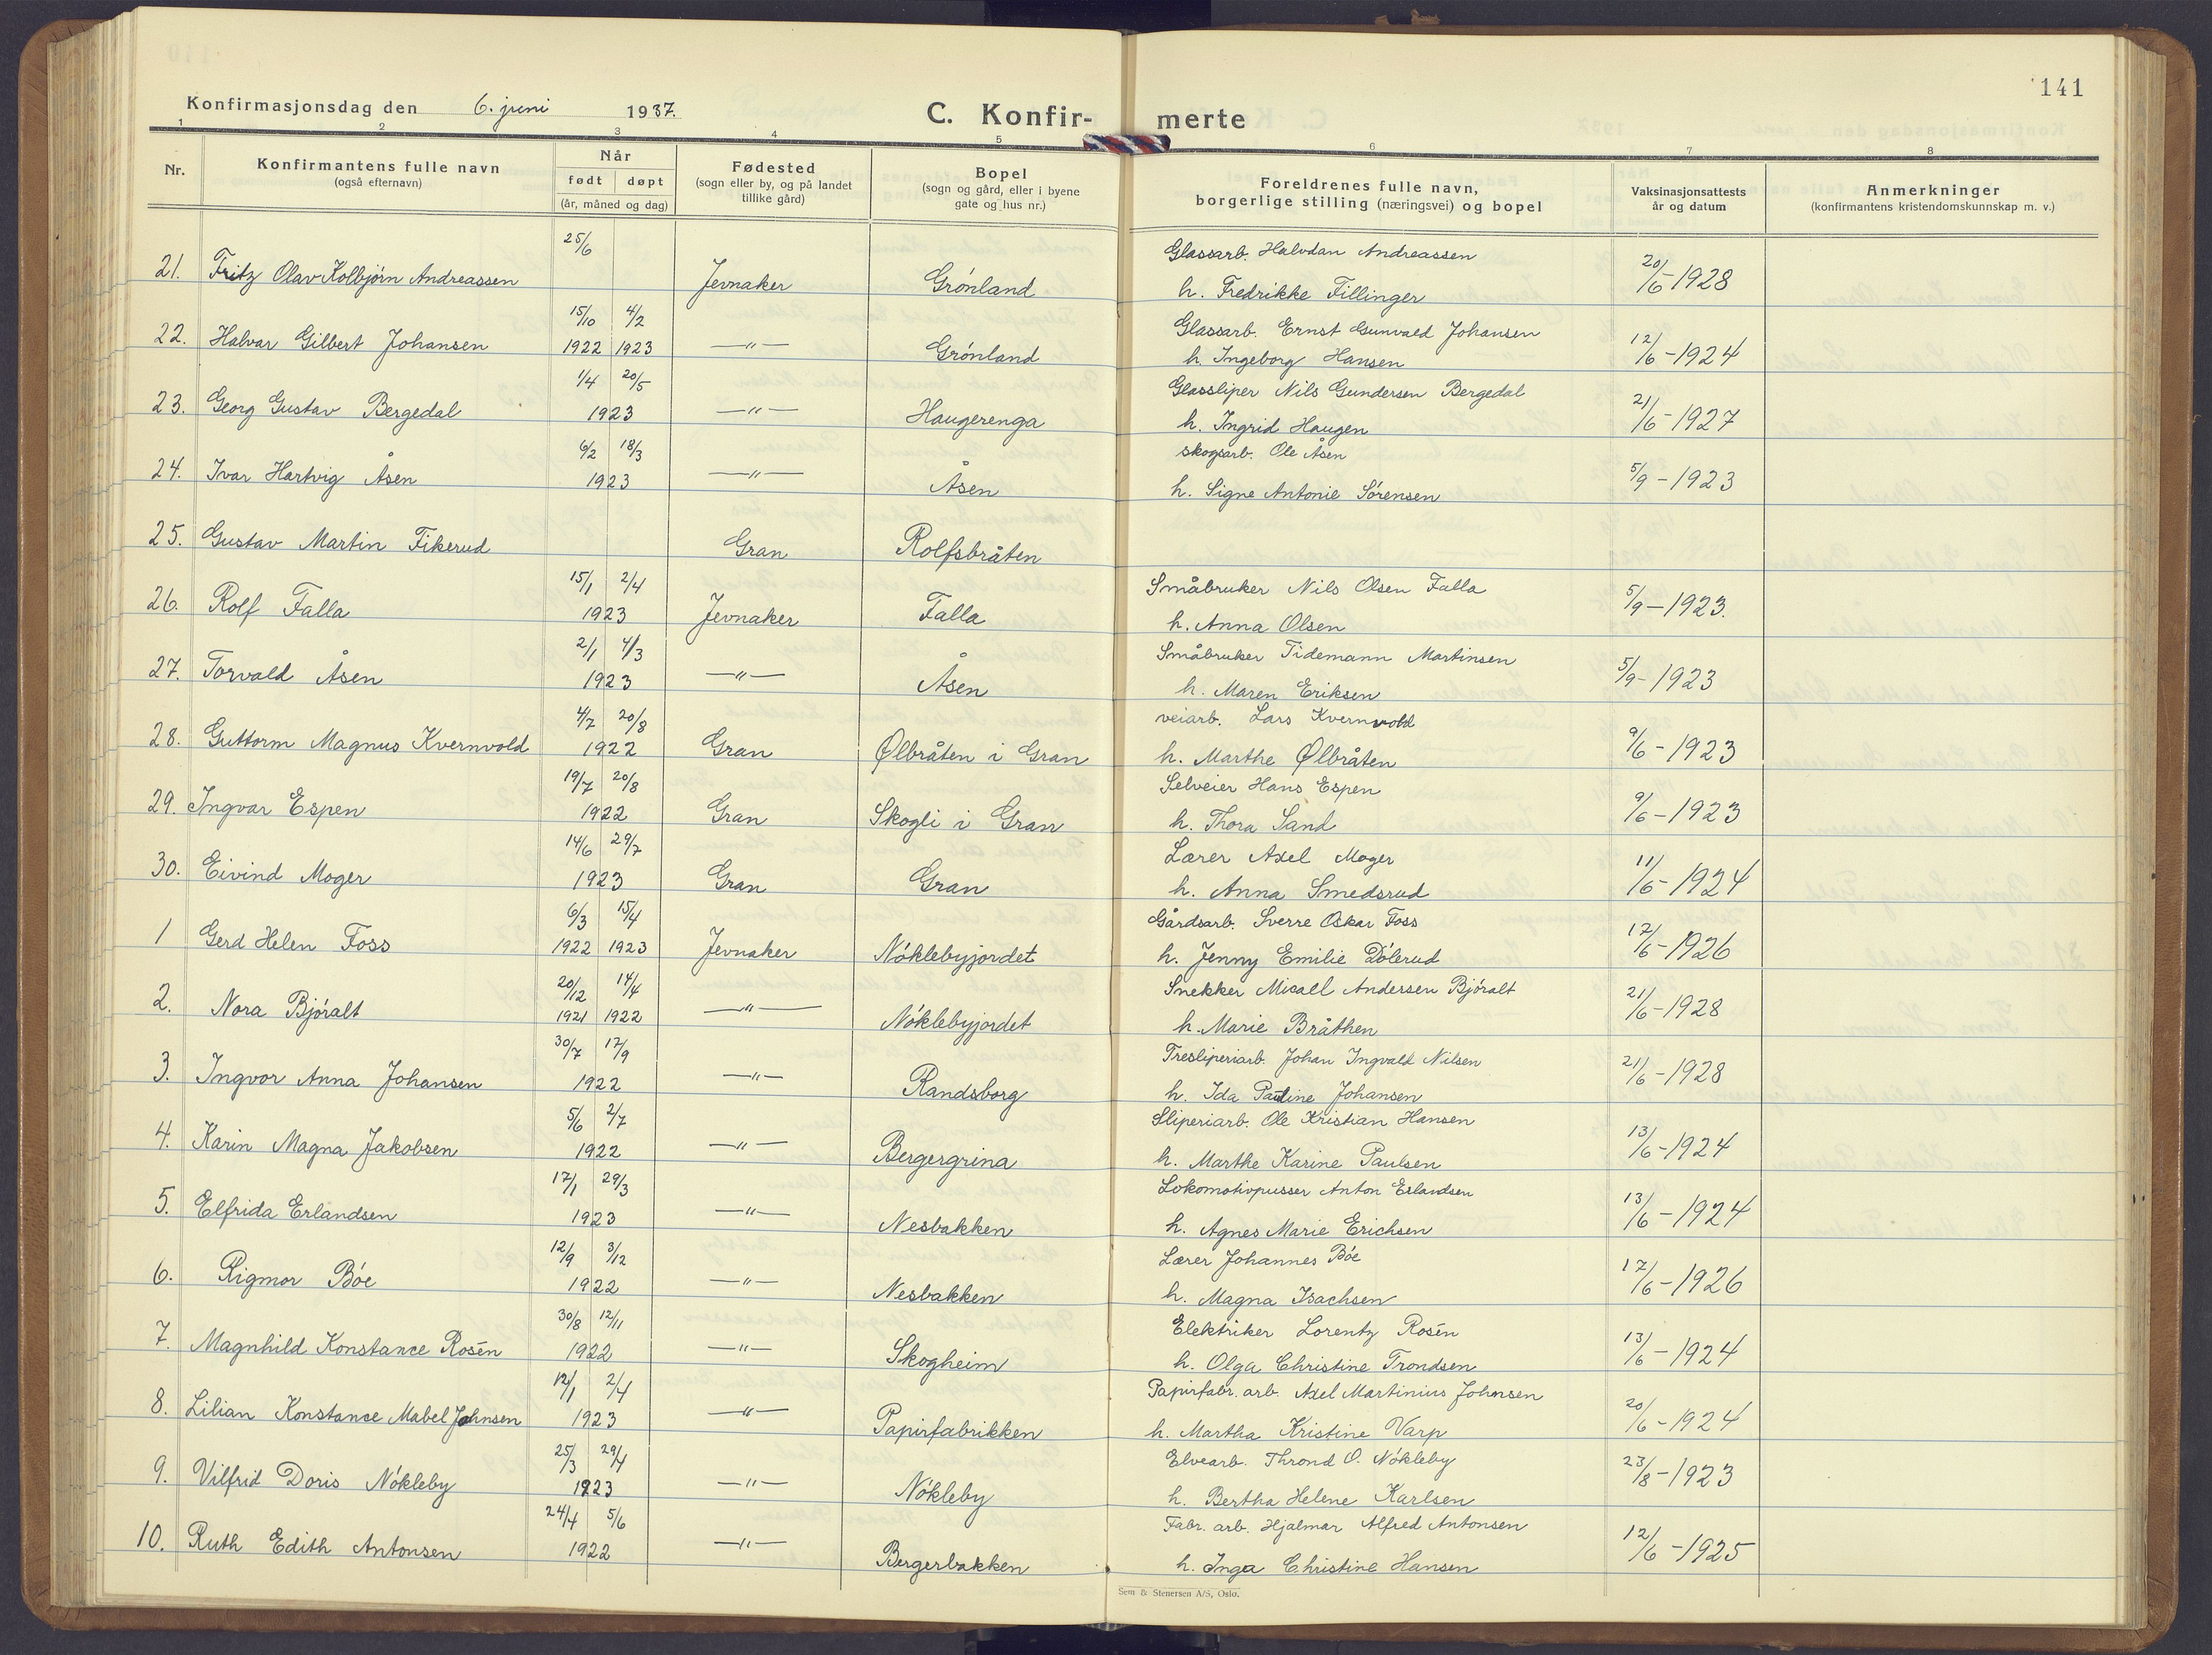 141
Konfirmasjonsdag den 6. juni 1937. C. Konfirmerte
1 2 3 4 5 6 7 8
Nr. Konfirmantens fulle navn (også efternavn) Når født døpt (år, måned og dag) Fødested (sogn eller by, og på landet tillike gård) Bopel (sogn og gård, eller i byene gate og hus nr.) Foreldrenes fulle navn, borgerlige stilling (næringsvei) og bopel Vaksinasjonsattests år og datum Anmerkninger (konfirmantens kristendomskunnskap m. v.)
25/6 Glassarb. Halvdan Andreassen
21. Fritz Olav Kolbjørn Andreassen Jevnaker Grønland h. Fredrikke Fillinger 20/6-1928
15/10 4/2 Glassarb. Ernst Gunvald Johansen
22. Halvar Gilbert Johansen 1922 1923 —"— Grønland h. Ingeborg Hansen 12/6-1924
1/4 20/5 Glassliper Nils Gundersen Bergedal
23. Georg Gustav Bergedal 1923 —"— Haugerenga h. Ingrid Haugen 21/6-1927
6/2 18/3 skogsarb. Ole Åsen
24. Ivar Hartvig Åsen 1923 —"— Åsen h. Signe Antonie Sørensen 5/9-1923
25. Gustav Martin Fikerud Gran Rolfsbråten
15/1 2/4 Småbruker Nils Olsen Falla
26. Rolf Falla 1923 Jevnaker Falla h. Anna Olsen 5/9-1923.
2/1 4/3 Småbruker Tidemann Martinsen
27. Torvald Åsen 1923 —"— Åsen h. Maren Eriksen 5/9-1923
4/7 20/8 veiarb. Lars Kvernvold
28. Guttorm Magnus Kvernvold 1922 Gran Ølbråten i Gran h. Marthe Ølbråten 9/6-1923
19/7 20/8 Selveier Hans Espen
29. Ingvar Espen 1922 Gran Skogli i Gran h. Thora Sand 9/6-1923
14/6 29/7 Lærer Axel Moger
30. Eivind Moger 1923 Gran Gran h. Anna Smedsrud 11/6-1924
6/3 15/4 Gårdsarb. Sverre Oskar Foss
1 Gerd Helen Foss 1922 1923 Jevnaker Nøklebyjordet h. Jenny Emilie Dølerud 17/6-1926
20/12 14/4 Snekker Micall Andersen Bjøralt
2. Nora Bjøralt 1921 1922 —"— Nøklebyjordet h. Marie Bråthen 21/6-1928
30/7 17/9 Tresliperiarb. Johan Ingvald Nilsen
3. Ingvor Anna Johansen 1922 —"— Randsborg h. Ida Pauline Johansen 21/6-1928
5/6 2/7 Sliperiarb. Ole Kristian Hansen
4. Karin Magna Jakobsen 1922 —"— Bergergrina h. Marthe Karine Paulsen 13/6-1924
17/1 29/3 Lokomotivpusser Anton Erlandsen
5. Elfrida Erlandsen 1923 —"— Nesbakken h. Agnes Marie Erichsen 13/6-1924
12/9 3/12 Lærer Johannes Bøe
6. Rigmor Bøe 1922 —"— Nesbakken h. Magna Isachsen 17/6-1926
30/8 12/11 Elektriker Lorentz Rosén
7. Magnhild Konstance Rosén 1922 —"— Skogheim h. Olga Christine Trondsen 13/6-1924
12/1 2/4 Papirfabr. arb. Axel Martinius Johnsen
8. Lilian Konstance Mabel Johnsen 1923 —"— Papirfabrikken h. Martha Kristine Varp 20/6-1924
25/3 29/4 Elvearb. Thrond O. Nøkleby
9. Vilfrid Doris Nøkleby 1923 —"— Nøkleby h. Bertha Helene Karlsen 23/8-1923
24/4 5/6 Fabr. arb. Hjalmar Alfred Antonsen
10. Ruth Edith Antonsen 1922 —"— Bergerbakken h. Inga Christine Hansen 12/6-1925
Sem & Stenersen A/S, Oslo.